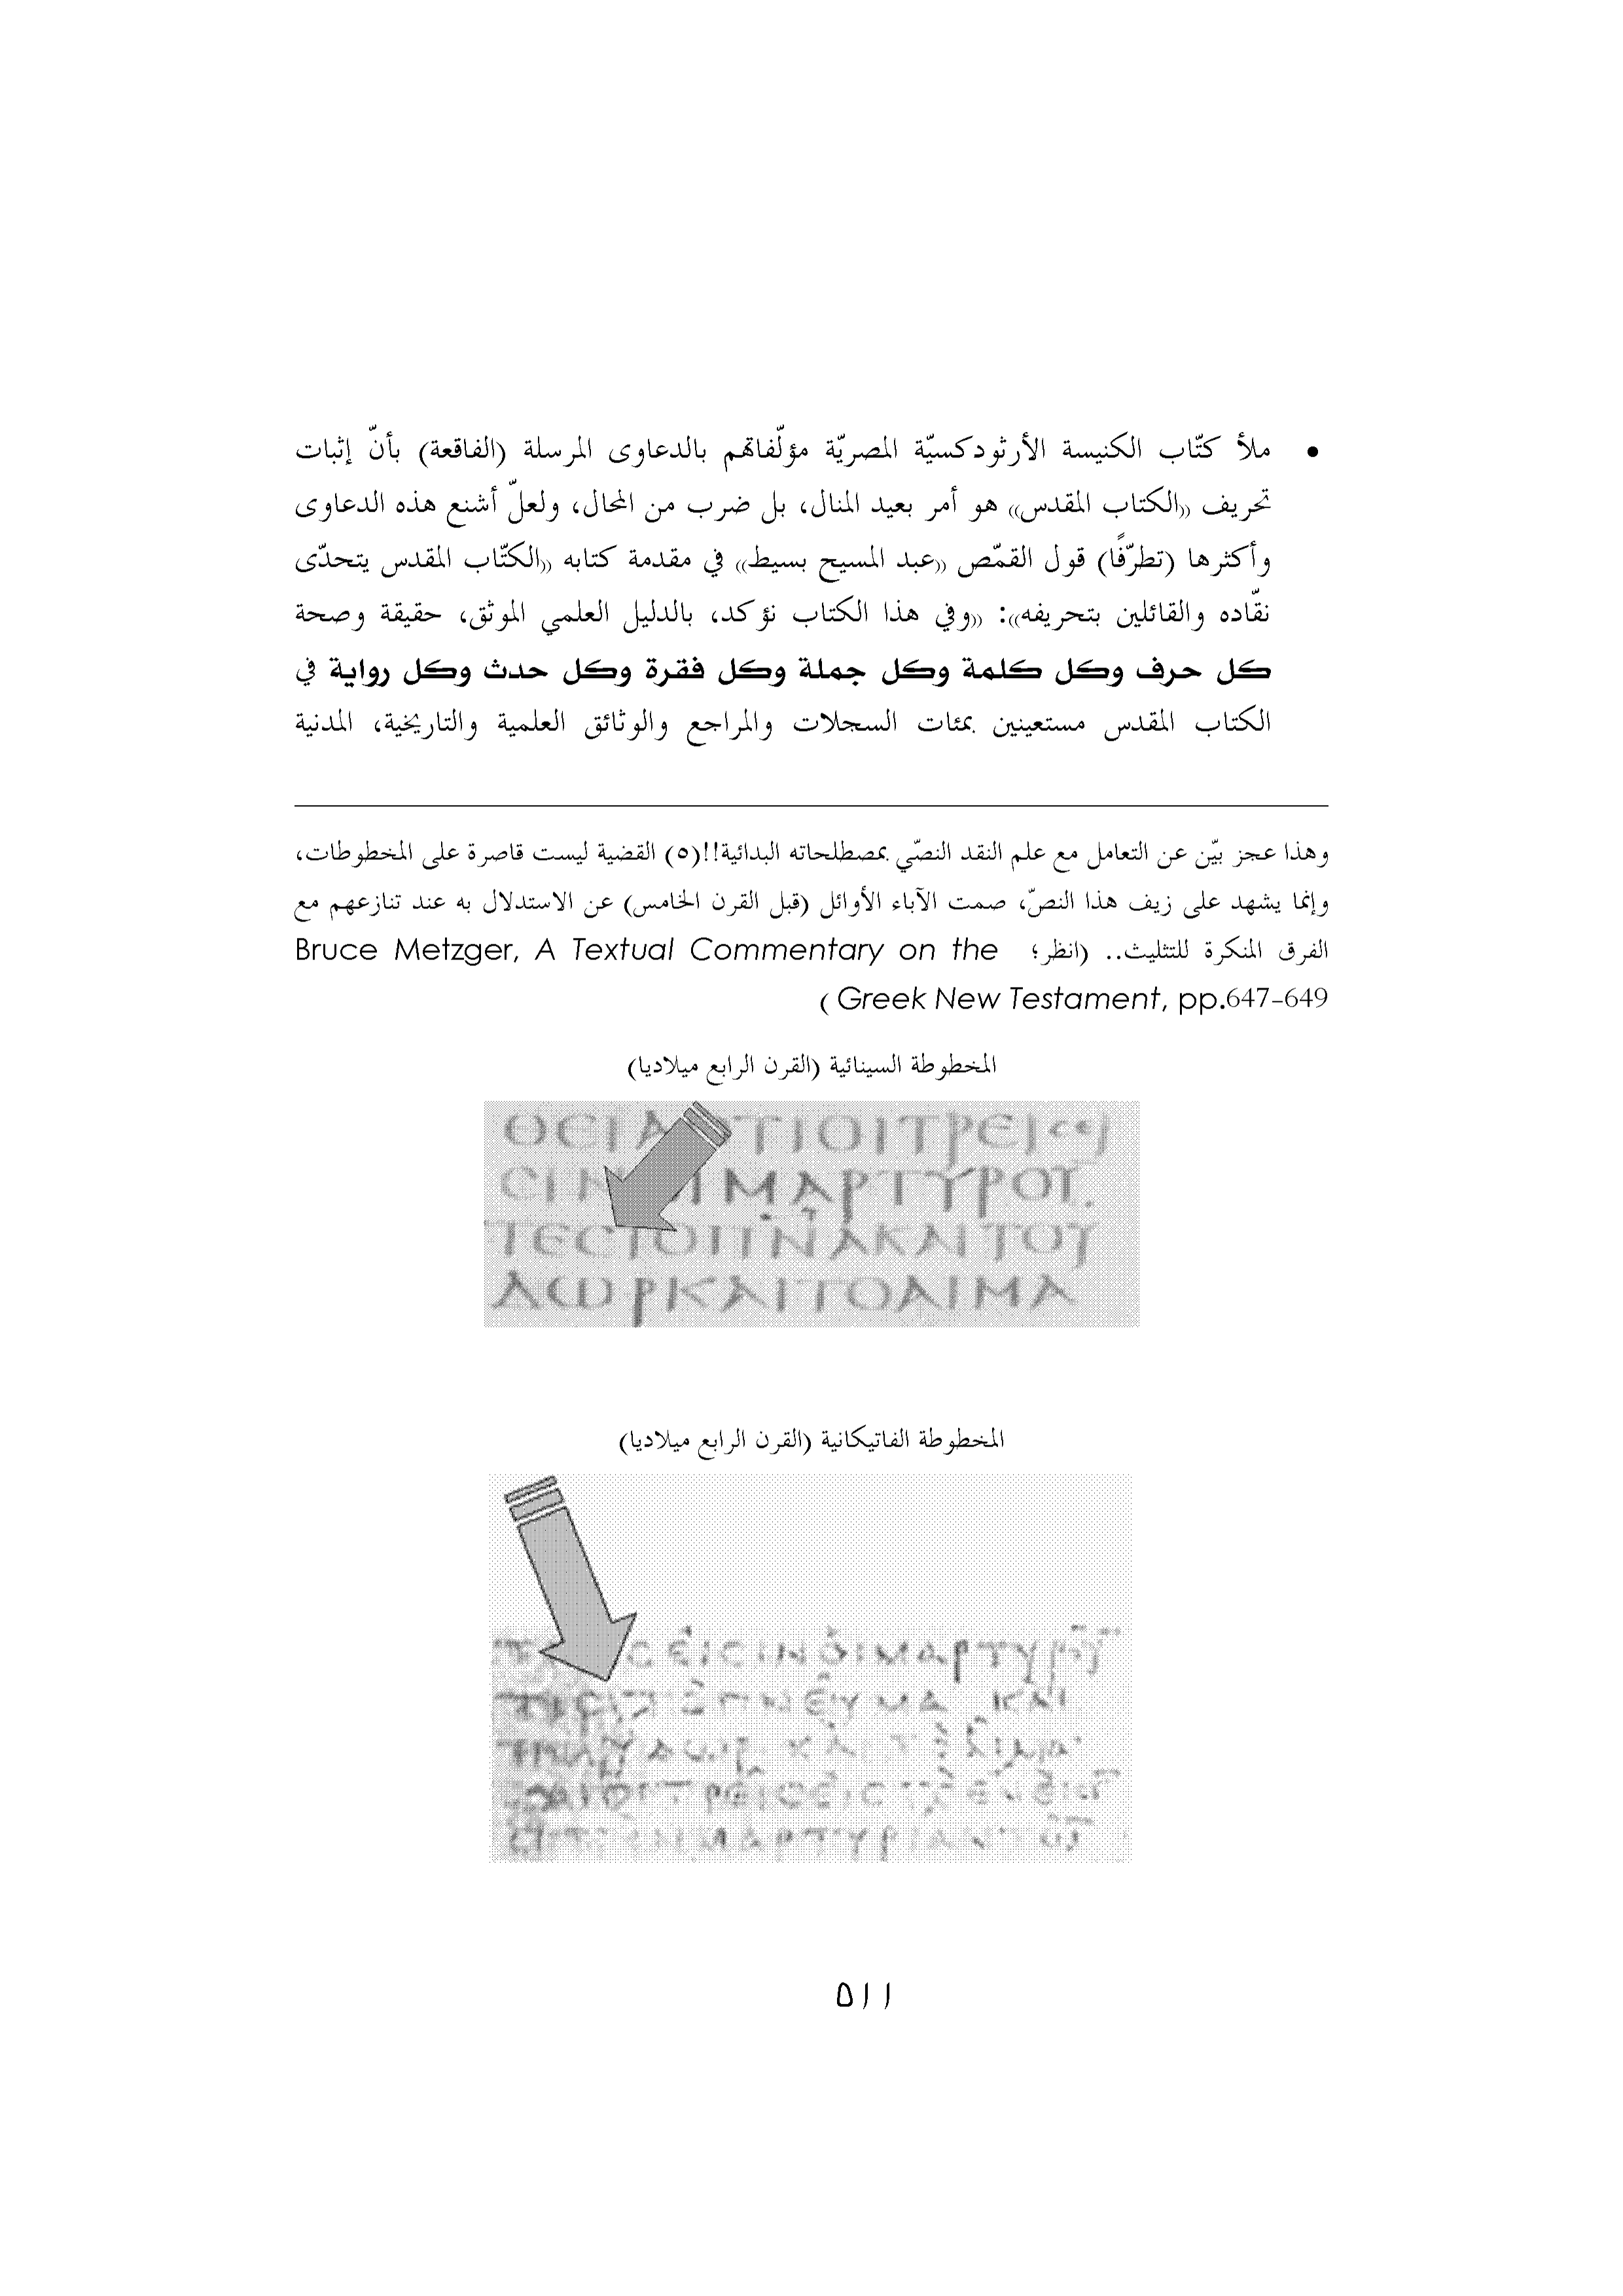 • ملأ كتّاب الكنيسة الأرثودكسيّة المصريّة مؤلّفاتهم بالدعاوى المرسلة (الفاقعة) بأنّ إثبات
تحريف «الكتاب المقدس» هو أمر بعيد المنال، بل ضرب من المحال، ولعلّ أشنع هذه الدعاوى
وأكثرها (تطرّفًا) قول القمّص «عبد المسيح بسيط» في مقدمة كتابه «الكتّاب المقدس يتحدّى
نقّاده والقائلين بتحريفه»: «وفي هذا الكتاب نؤكد، بالدليل العلمي الموثق، حقيقة وصحة
كل حرف وكل كلمة وكل جملة وكل فقرة وكل حدث وكل رواية في
الكتاب المقدس مستعينين بمئات السجلات والمراجع والوثائق العلمية والتاريخية، المدنية
وهذا عجز بيّن عن التعامل مع علم النقد النصّي بمصطلحاته البدائية!!(٥) القضية ليست قاصرة على المخطوطات،
وإنما يشهد على زيف هذا النصّ، صمت الآباء الأوائل (قبل القرن الخامس) عن الاستدلال به عند تنازعهم مع
الفرق المنكرة للتثليث.. (انظر؛ Bruce Metzger, A Textual Commentary on the
Greek New Testament, pp.647-649 )
المخطوطة السينائية (القرن الرابع ميلاديا)
ΤΙΟΙΤΡΕΙ
ΜΑΡΤΥΡΟΥ
ΤΕCΤΟΠΝΑΚΑΙΤΟΥ
ΔΩΡΚΑΙΤΟΑΙΜΑ
المخطوطة الفاتيكانية (القرن الرابع ميلاديا)
CΕΙCΙΝΟΙΜΑΡΤΥΡΟΥ
ΠΝΕΥΜΑ ΚΑΙ
ΜΑΡΤΥΡΙΑΝ
٥١١